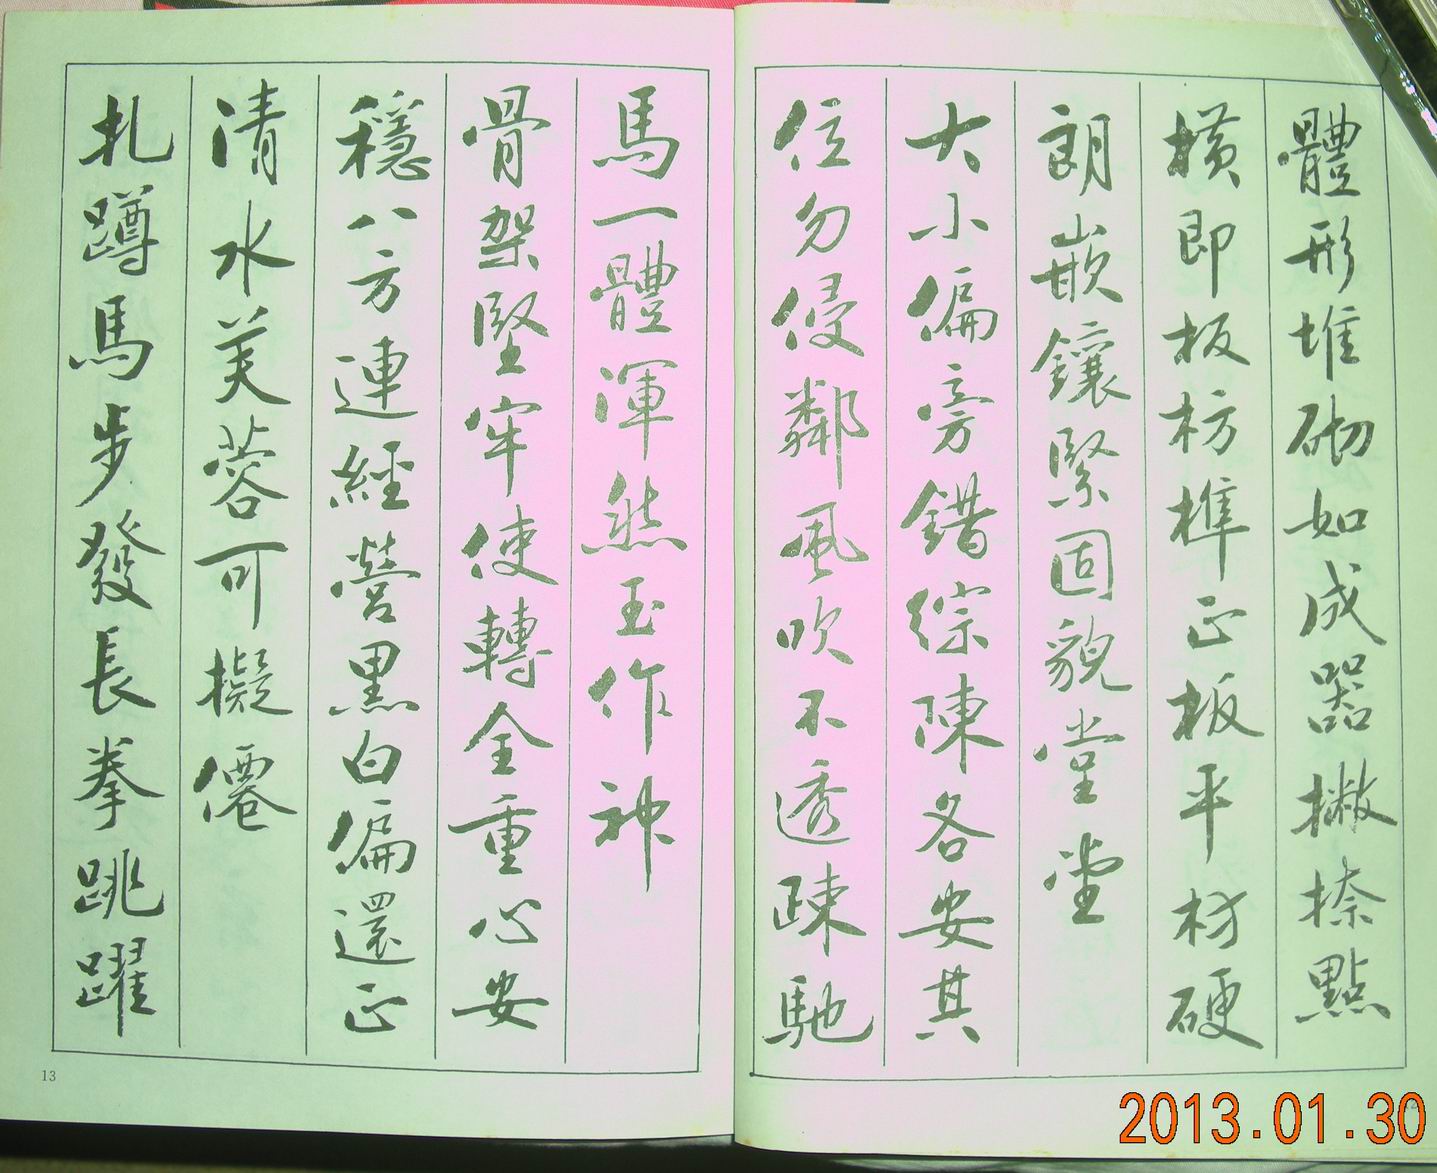 體形堆砌如成器撇捺點
橫即板枋榫正板平材硬
朗嵌鑲緊固貌堂堂
大小偏旁錯綜陳各安其
位勿侵鄰風吹不透疎馳
馬一體渾然玉作神
骨架堅牢使轉全重心安
穩八方連經營黑白偏還正
清水芙蓉可擬僊
扎蹲馬步發長拳跳躍
13
2013.01.30